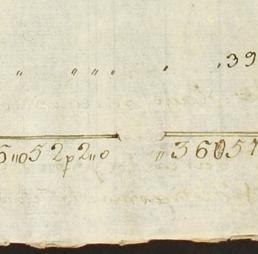 " " " . . .39
6"052p2"0 "36054